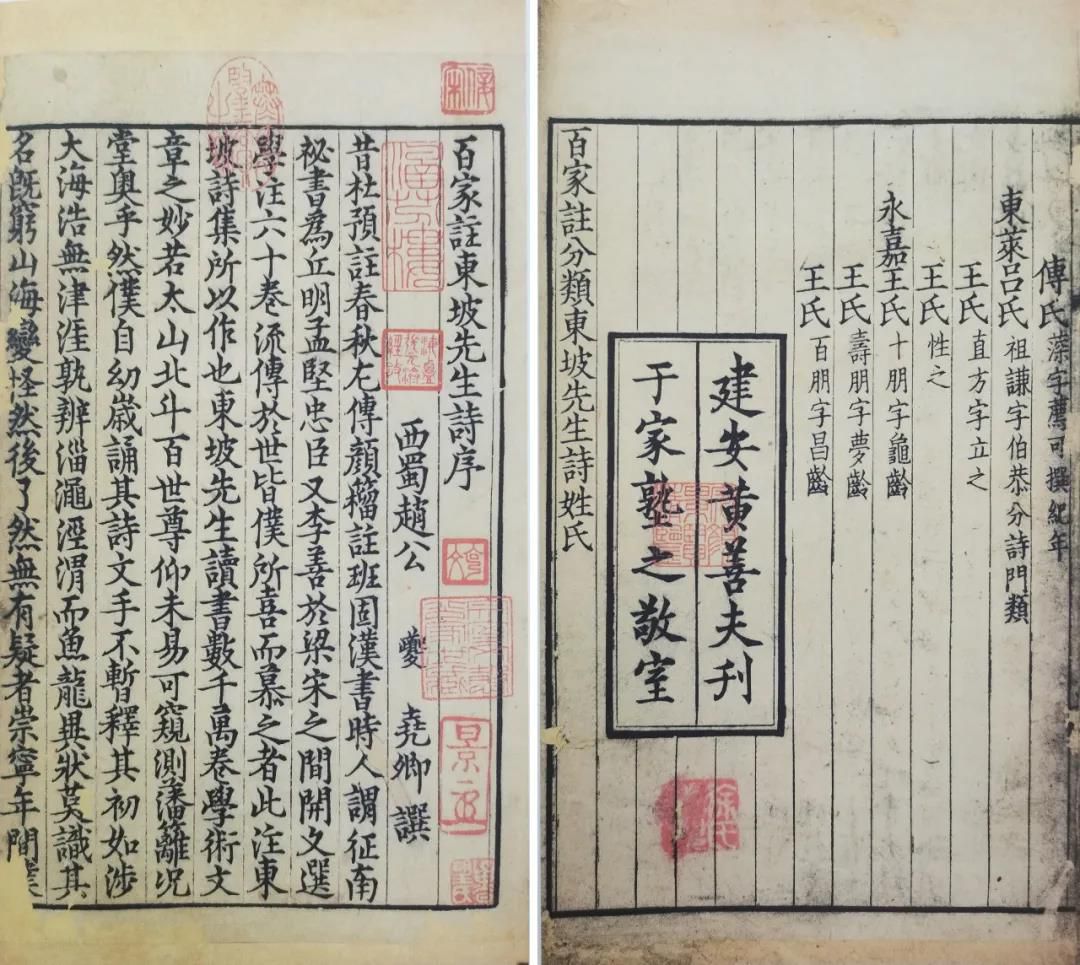 百家註東坡先生詩序
西蜀趙公 夔 堯卿 譔
昔杜預註春秋左傳顔籀註班固漢書時人謂征南
祕書為丘明孟堅忠臣又李善於梁宋之間開文選
學注六十卷流傳於世皆僕所喜而慕之者此注東
坡詩集所以作也東坡先生讀書數千萬卷學術文
章之妙若太山北斗百世尊仰未易可窺測藩籬况
堂奥乎然僕自幼歲誦其詩文手不暫釋其初如涉
大海浩無津涯孰辨淄澠涇渭而魚龍異狀莫識其
名旣窮山海變怪然後了然無有疑者崇寧年間僕
傳氏藻字薦可撰紀年
東萊呂氏祖謙字伯恭分詩門類
王氏直方字立之
王氏性之
永嘉王氏十朋字龜齡
王氏壽朋字夢齡
王氏百朋字昌齡
建安黄善夫刊
于家塾之敬室
百家註分類東坡先生詩姓氏
景正
徐氏